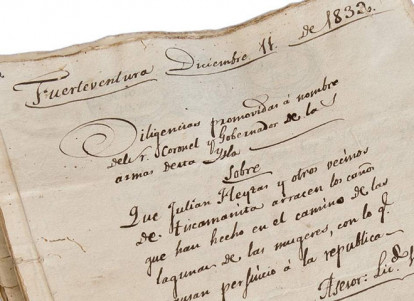 Fuerteventura Diciembre 11 de 1832.
Diligencias promovidas á nombre
del Sr. Coronel y Gobernador de las
armas desta Ysla
Sobre
Que Julian Fleytas y otros vecinos
de Tiscamanita arracen los caños
que han hecho en el camino de las
lagunas de las mugeres, con lo q.
causan perjuicio á la republica.
Asesor: Lic.